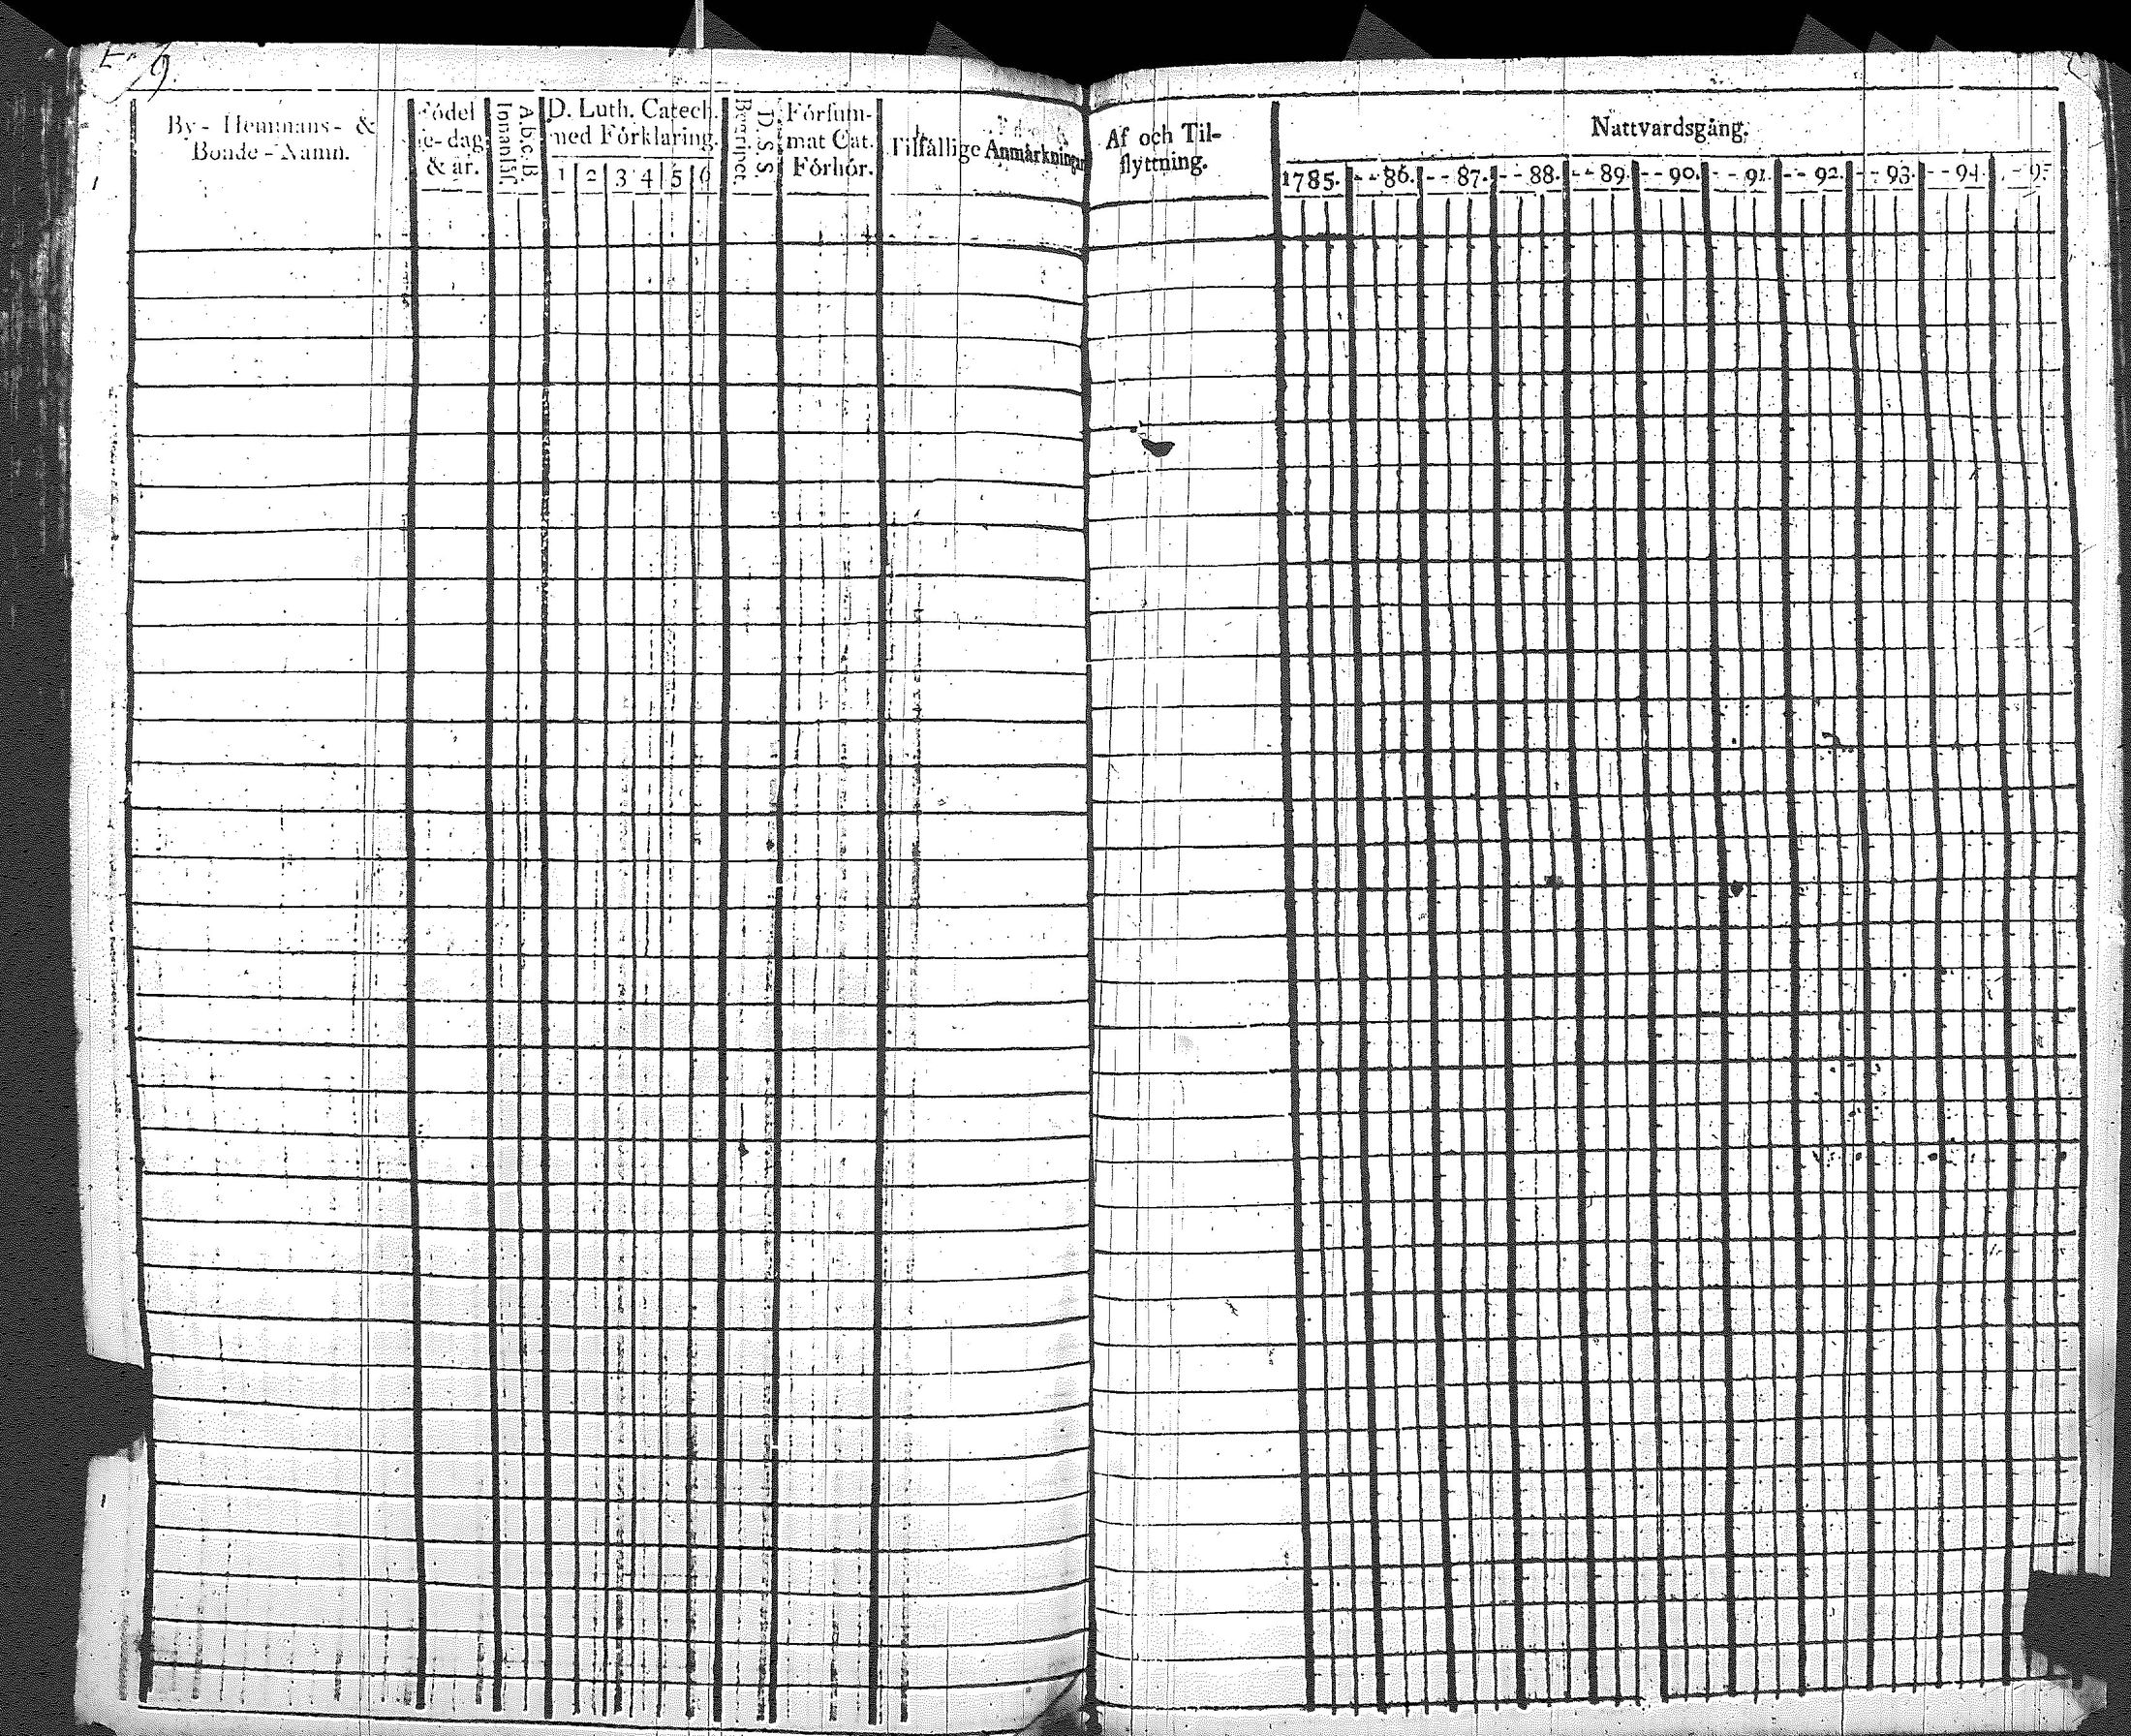 9.
By- Hemmans- &
Bonde-Namn.
Födel
se-dag
& år.
Innanläs.
A.b.c.B.
D. Luth. Catech.
med Förklaring.
1 2 3 4 5 6
Begripet.
D. S. S
Försum-
mat Cat.
Förhör.
Tilfällige Anmärkningar
Af och Til-
flyttning.
Nattvardsgång.
1785. - - 86. - - 87. - - 88. - - 89. - - 90. - - 91. - - 92. - - 93. - - 94. - - 95